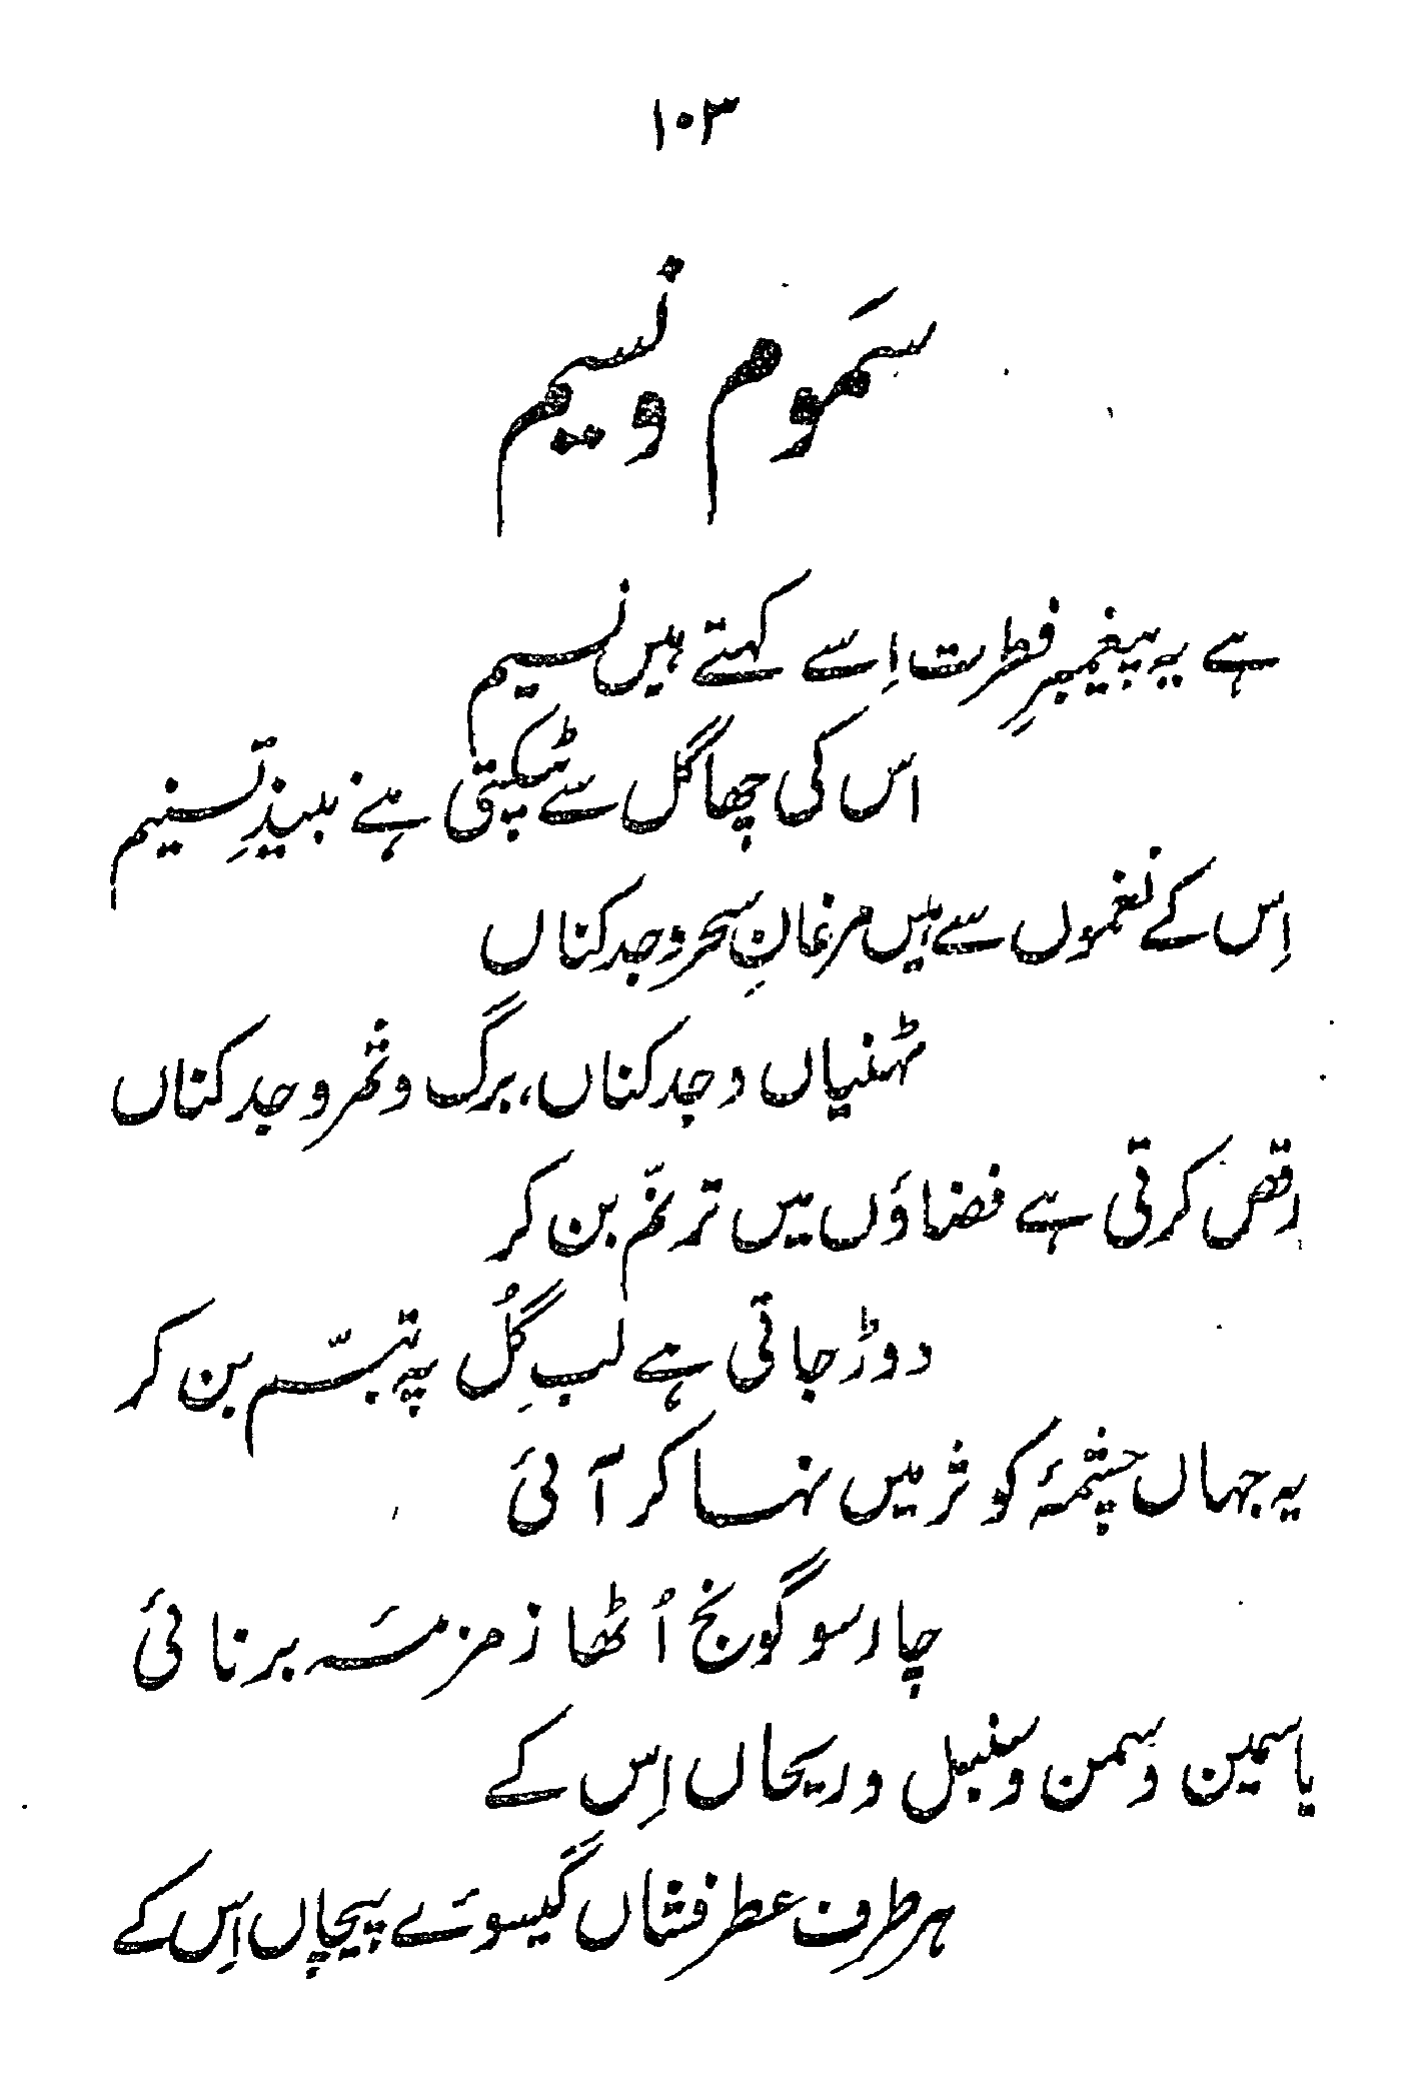 ۱۰۳
سَموم و نسیم
ہے یہ پیغمبرِ فطرت اِسے کہتے ہیں نسیم
اس کی چھاگل سے ٹپکتی ہے نبیذِ تسنیم
اِس کے نغموں سے ہیں مرغانِ سحر وجد کناں
ٹہنیاں وجد کناں، برگ و ثمر وجد کناں
رقص کرتی ہے فضاؤں میں ترنّم بن کر
دوڑ جاتی ہے لبِ گُل پہ تبسّم بن کر
یہ جہاں چشمۂ کوثر میں نہا کر آئی
چار سو گونج اُٹھا زمزمۂ برنائی
یاسمین و سمن و سنبل و ریحاں اِس کے
ہر طرف عطر فشاں گیسوئے پیچاں اِس کے